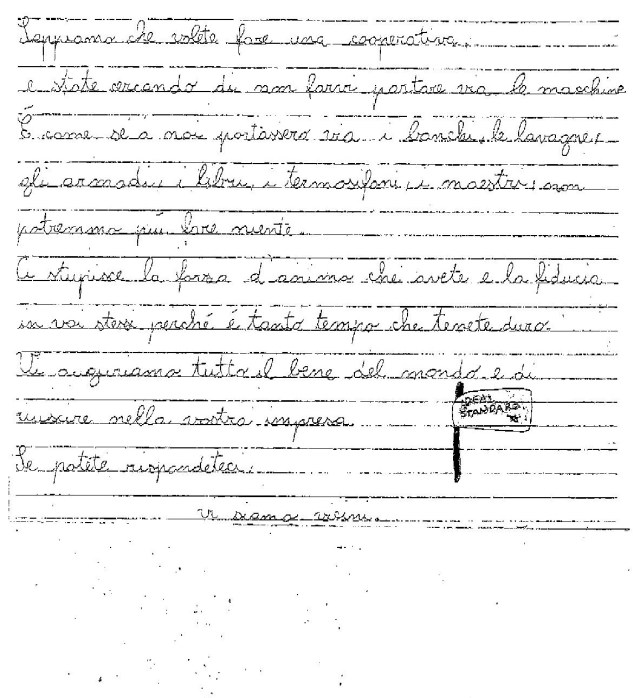 Sappiamo che volete fare una cooperativa,
e state cercando di non farvi portare via le macchine
È come se a noi portassero via i banchi, le lavagne,
gli armadi, i libri, i termosifoni, i maestri; non
potremmo più fare niente.
Ci stupisce la forza d'animo che avete e la fiducia
in voi stessi perché è tanto tempo che tenete duro.
Vi auguriamo tutto il bene del mondo e di
riuscire nella vostra impresa.
IDEAL
STANDARD
Se potete rispondeteci.
vi siamo vicini.